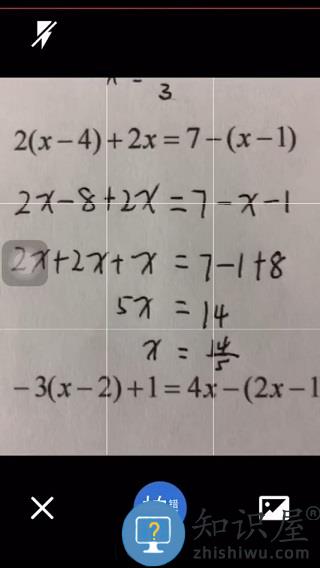 3
2(x-4)+2x=7-(x-1)
2x-8+2x=7-x-1
2x+2x+x=7-1+8
5x=14
x=14/5
-3(x-2)+1=4x-(2x-1
?
知识屋®
zhishiwu.com